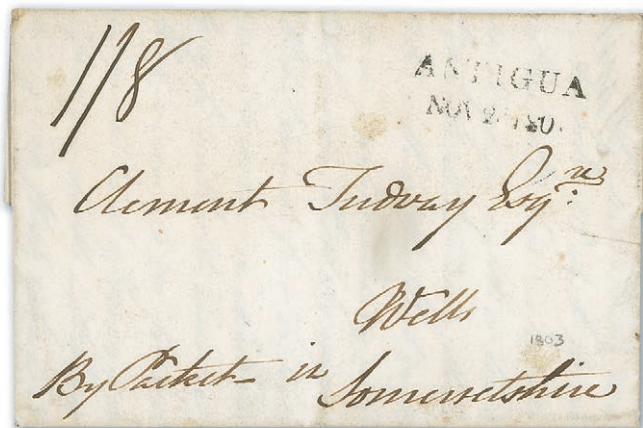 1/8
ANTIGUA
NOV
Clement Tudway Esqre:
Wells
1803
By Packet in Somersetshire